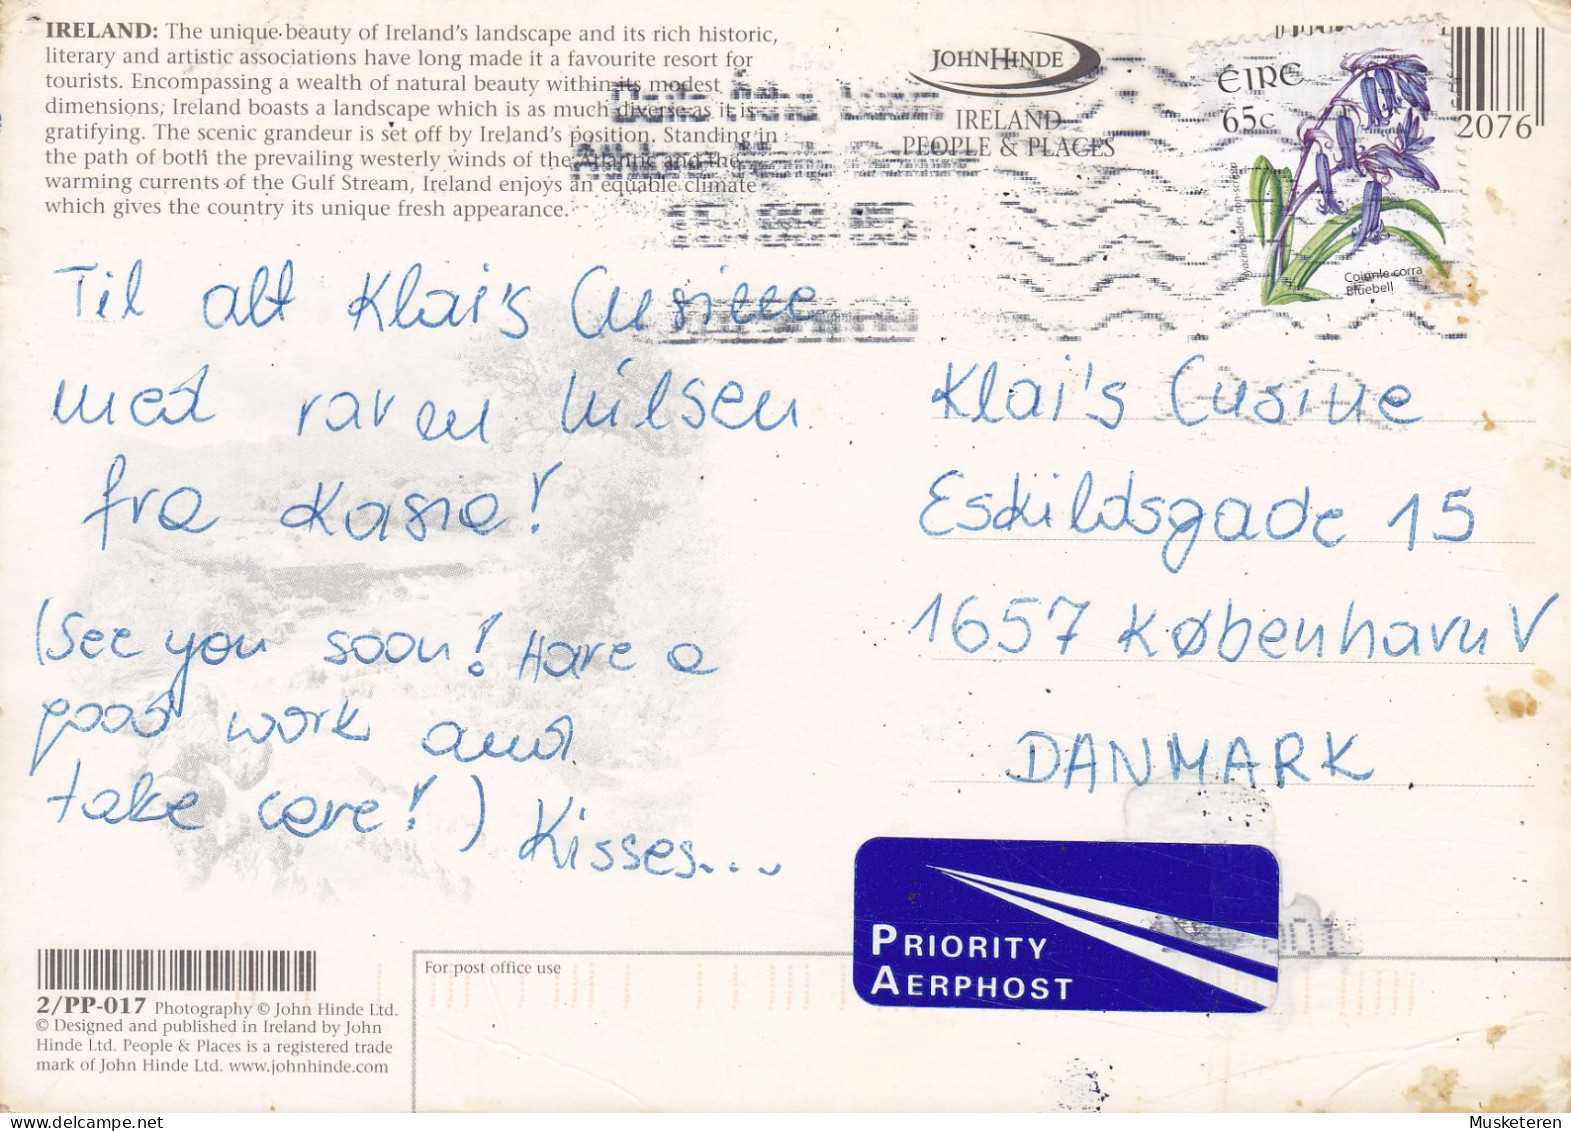 IRELAND: The unique beauty of Ireland's landscape and its rich historic,
literary and artistic associations have long made it a favourite resort for
tourists. Encompassing a wealth of natural beauty within its modest
dimensions, Ireland boasts a landscape which is as much diverse as it is
gratifying. The scenic grandeur is set off by Ireland's position. Standing in
the path of both the prevailing westerly winds of the Atlantic and the
warming currents of the Gulf Stream, Ireland enjoys an equable climate
which gives the country its unique fresh appearance.
JOHN HINDE
IRELAND
PEOPLE & PLACES
ÉIRE
65c
Hyacinthoides non-scripta
Coinnle corra
Bluebell
2076
Til alt Klai's Cusine
med raven Nilsen
fra Kasia!
(See you soon! Have a
good work and
take care!) Kisses...
Klai's Cusine
Eskildsgade 15
1657 København V
DANMARK
PRIORITY
AERPHOST
For post office use
2/PP-017 Photography © John Hinde Ltd.
© Designed and published in Ireland by John
Hinde Ltd. People & Places is a registered trade
mark of John Hinde Ltd. www.johnhinde.com
Musketeren